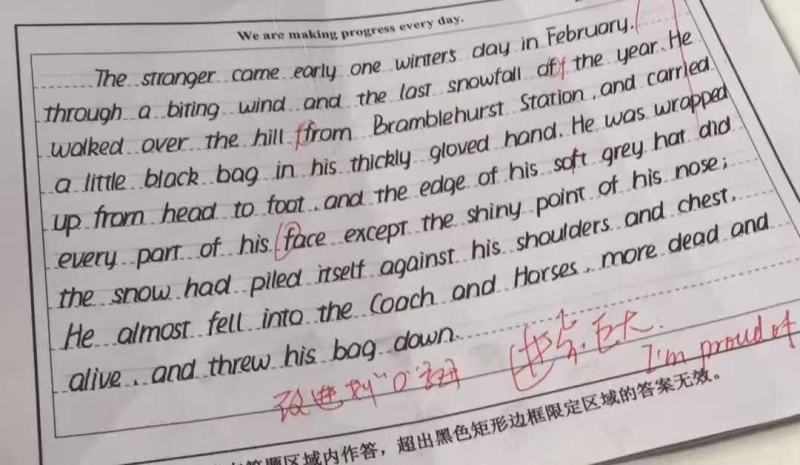 We are making progress every day.
The stranger came early one winter's day in February.
through a biting wind and the last snowfall of the year. He
walked over the hill from Bramblehurst Station, and carried
a little black bag in his thickly gloved hand. He was wrapped
up from head to foot, and the edge of his soft grey hat did
every part of his face except the shiny point of his nose;
the snow had piled itself against his shoulders and chest.
He almost fell into the Coach and Horses, more dead and
alive, and threw his bag down.
进步巨大.
I'm proud of
改进到"O"
答题区域内作答，超出黑色矩形边框限定区域的答案无效。